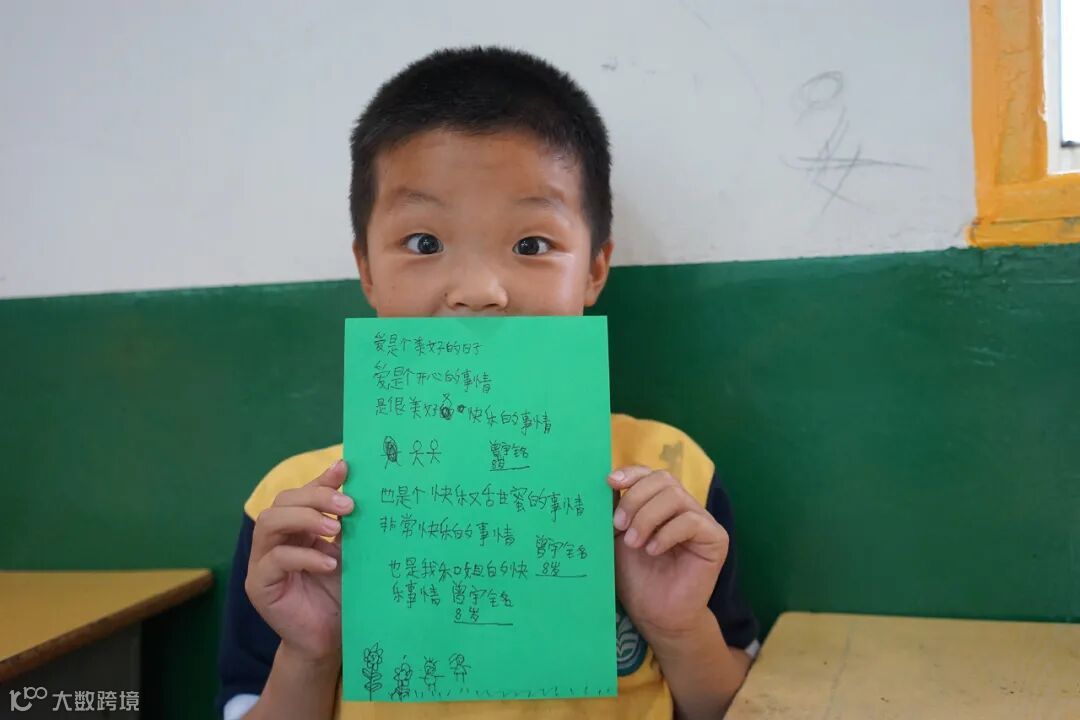 爱是个美好的日子
爱是个开心的事情
是很美好 快乐的事情
曾宇铭
8岁
也是个快乐又舌甘蜜的事情
非常快乐的事情
曾宇铭
8岁
也是我和姐的快
乐事情 曾宇铭
8岁
大数跨境